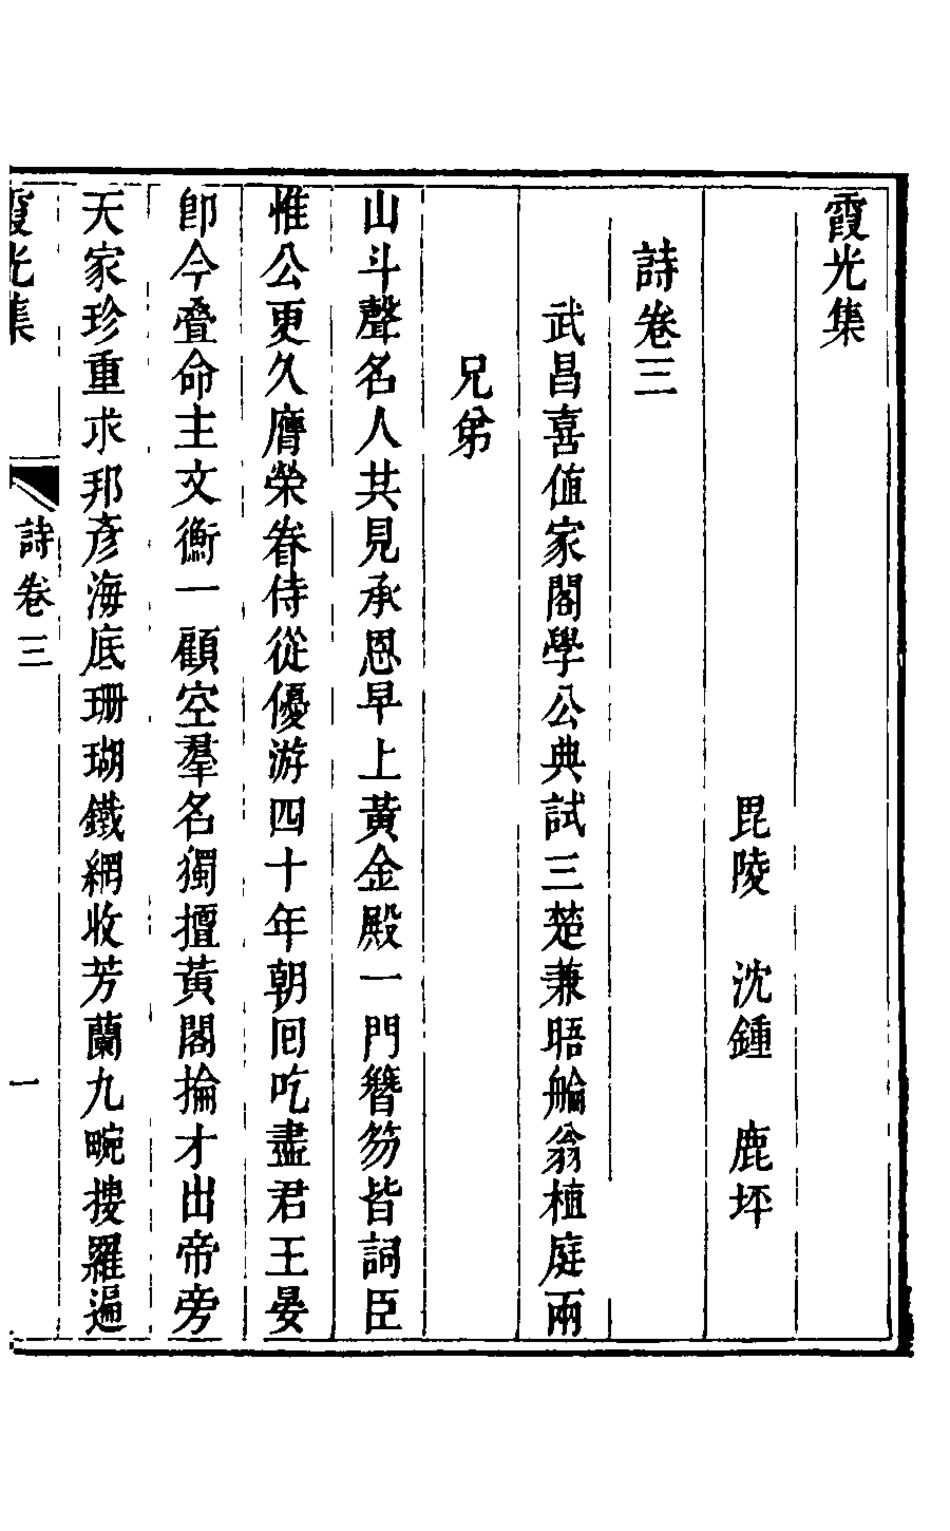 霞光集
毘陵　沈鍾　鹿坪
詩卷三
武昌喜値家閣學公典試三楚兼晤艑翁植庭兩
兄弟
山斗聲名人共見承恩早上黃金殿一門簪笏皆詞臣
惟公更久膺榮眷侍從優游四十年朝囘吃盡君王晏
卽今疊命主文衡一顧空羣名獨擅黃閣掄才出帝旁
天家珍重求邦彥海底珊瑚鐵網收芳蘭九畹摟羅遍
霞光集　詩卷三　一